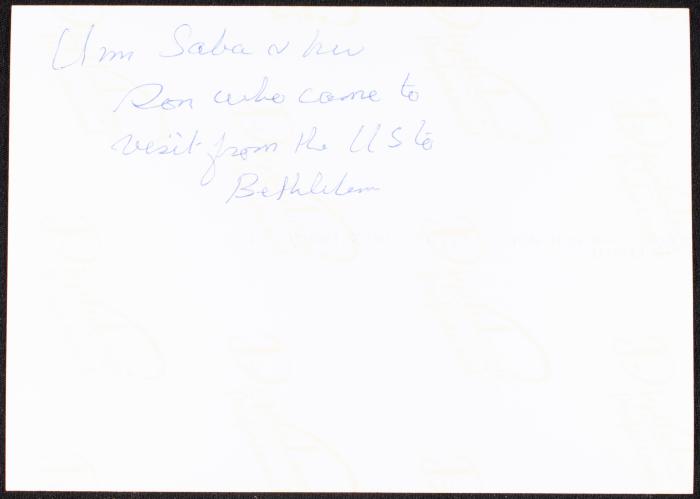 Umm Saba & her
Son who came to
visit from the US to
Bethlehem